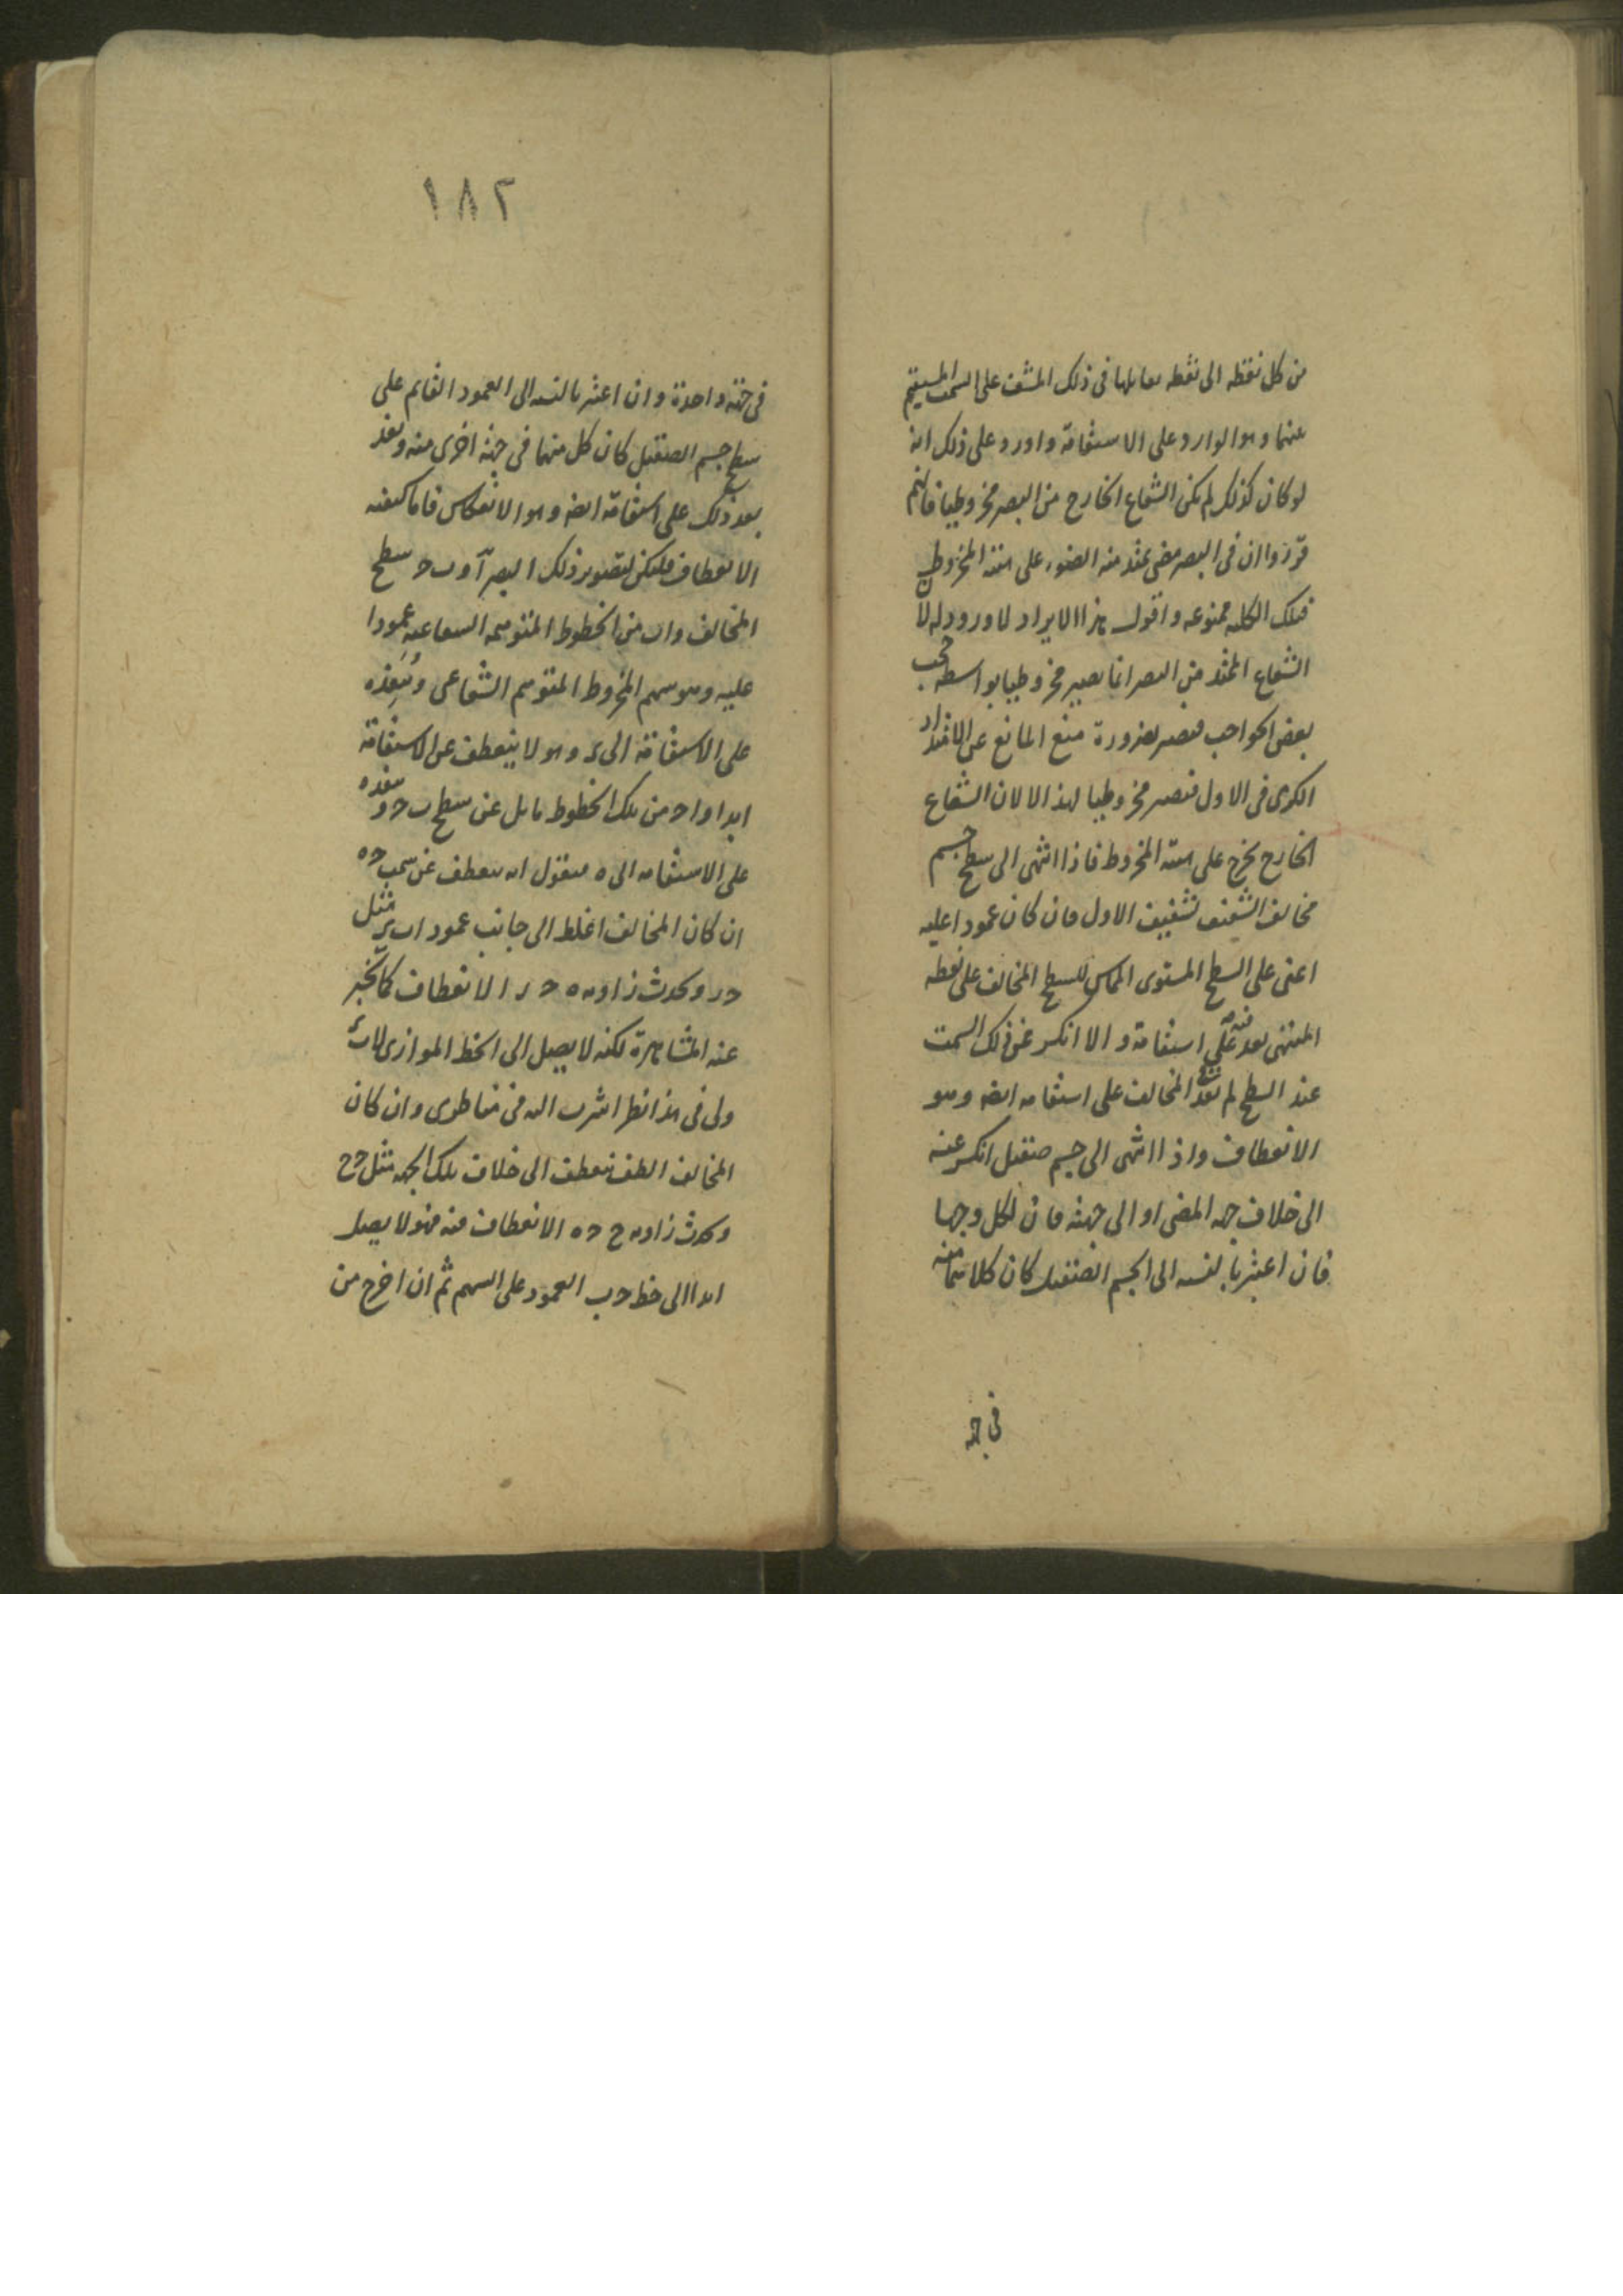 من كل نقطه الى نقطه يقابلها فى ذلك المشف على السمت المستقيم
بينهما وهو الوارد على الاستقامة واورد على ذلك انه
لو كان كذلك لم يكن الشعاع الخارج من البصر مخروطيا فانهم
قرروا ان فى البصر مضى يمتد منه الضوء على هيئة المخروط
فتلك الكليه ممنوعه واقول هذا الايراد لا ورود له لان
الشعاع الممتد من البصر انما يصير مخروطيا بواسطه حجب
بعض الحواجب فيصير بضرورة منع المانع عن الامتداد
الكرى فى الاول فيصير مخروطيا لهذا لا لان الشعاع
الخارج يخرج على هيئة المخروط فاذا انتهى الى سطح جسم
مخالف الشفيف لشفيف الاول فان كان عمودا عليه
اعنى على السطح المستوى المماس للسطح المخالف على نقطه
المنتهى نفذ فيه على استقامة والا انكسر عن ذلك السمت
عند السطح ثم نفذ فى المخالف على استقامه ايضا وهو
الانعطاف واذا انتهى الى جسم صقيل انكسر عنه
الى خلاف جهه المضى او الى جهته فان لكل وجها
فان اعتبر بالنسبه الى الجسم الصقيل كان كلاهما منه
فى جهه
١٨٢
فى جهة واحدة وان اعتبر بالنسبه الى العمود القايم على
سطح جسم الصقيل كان كل منهما فى جهة اخرى منه ونفذ
بعد ذلك على استقامة ايضا وهو الانعكاس فاما كيفيه
الانعطاف فليكن لتصوير ذلك البصر آ و ب ح سطح
المخالف و ا ب من الخطوط المتوهمه الشعاعيه عمودا
عليه وهو سهم المخروط المتوهم الشعاعى وننفذه
على الاستقامة الى ى وهو لا ينعطف عن الاستقامة
ابدا و ا ح من تلك الخطوط مايل عن سطح ب ح و ننفذه
على الاستقامه الى ه فنقول انه ينعطف عن سمت ح ه
ان كان المخالف اغلظ الى جانب عمود ا ب ى مثل
ح ر ويحدث زاويه ه ح ر الانعطاف كما يخبر
عنه المشاهرة لكنه لا يصل الى الخط الموازى لا ب ى
ولى فى هذا نظر اشرت اليه فى مناظرى وان كان
المخالف الطف ينعطف الى خلاف تلك الجهه مثل ح ح
ويحدث زاويه ح ح ه الانعطاف منه فهو لا يصل
ابدا الى خط ح ب العمود على السهم ثم ان اخرج من